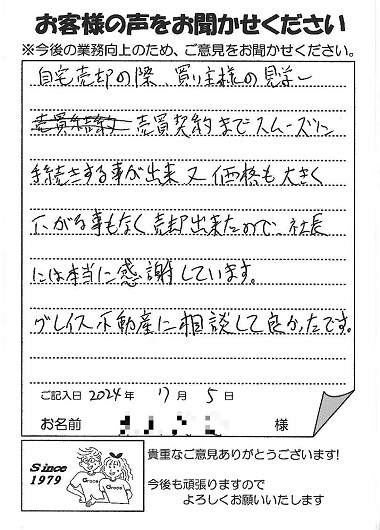 お客様の声をお聞かせください
※今後の業務向上のため、ご意見をお聞かせください。
自宅売却の際、買い主様の見学〜
売買契約まてスムーズに
手続きする事が出来 又 価格も大きく
下がる事もなく売却出来たので、社長
には本当に感謝しています。
グレイス不動産に相談して良かったです。
ご記入日 2024年 月 5日
お名前 様
Since
1979
Grace
Grace
貴重なご意見ありがとうございます!
今後も頑張りますので
よろしくお願いいたします